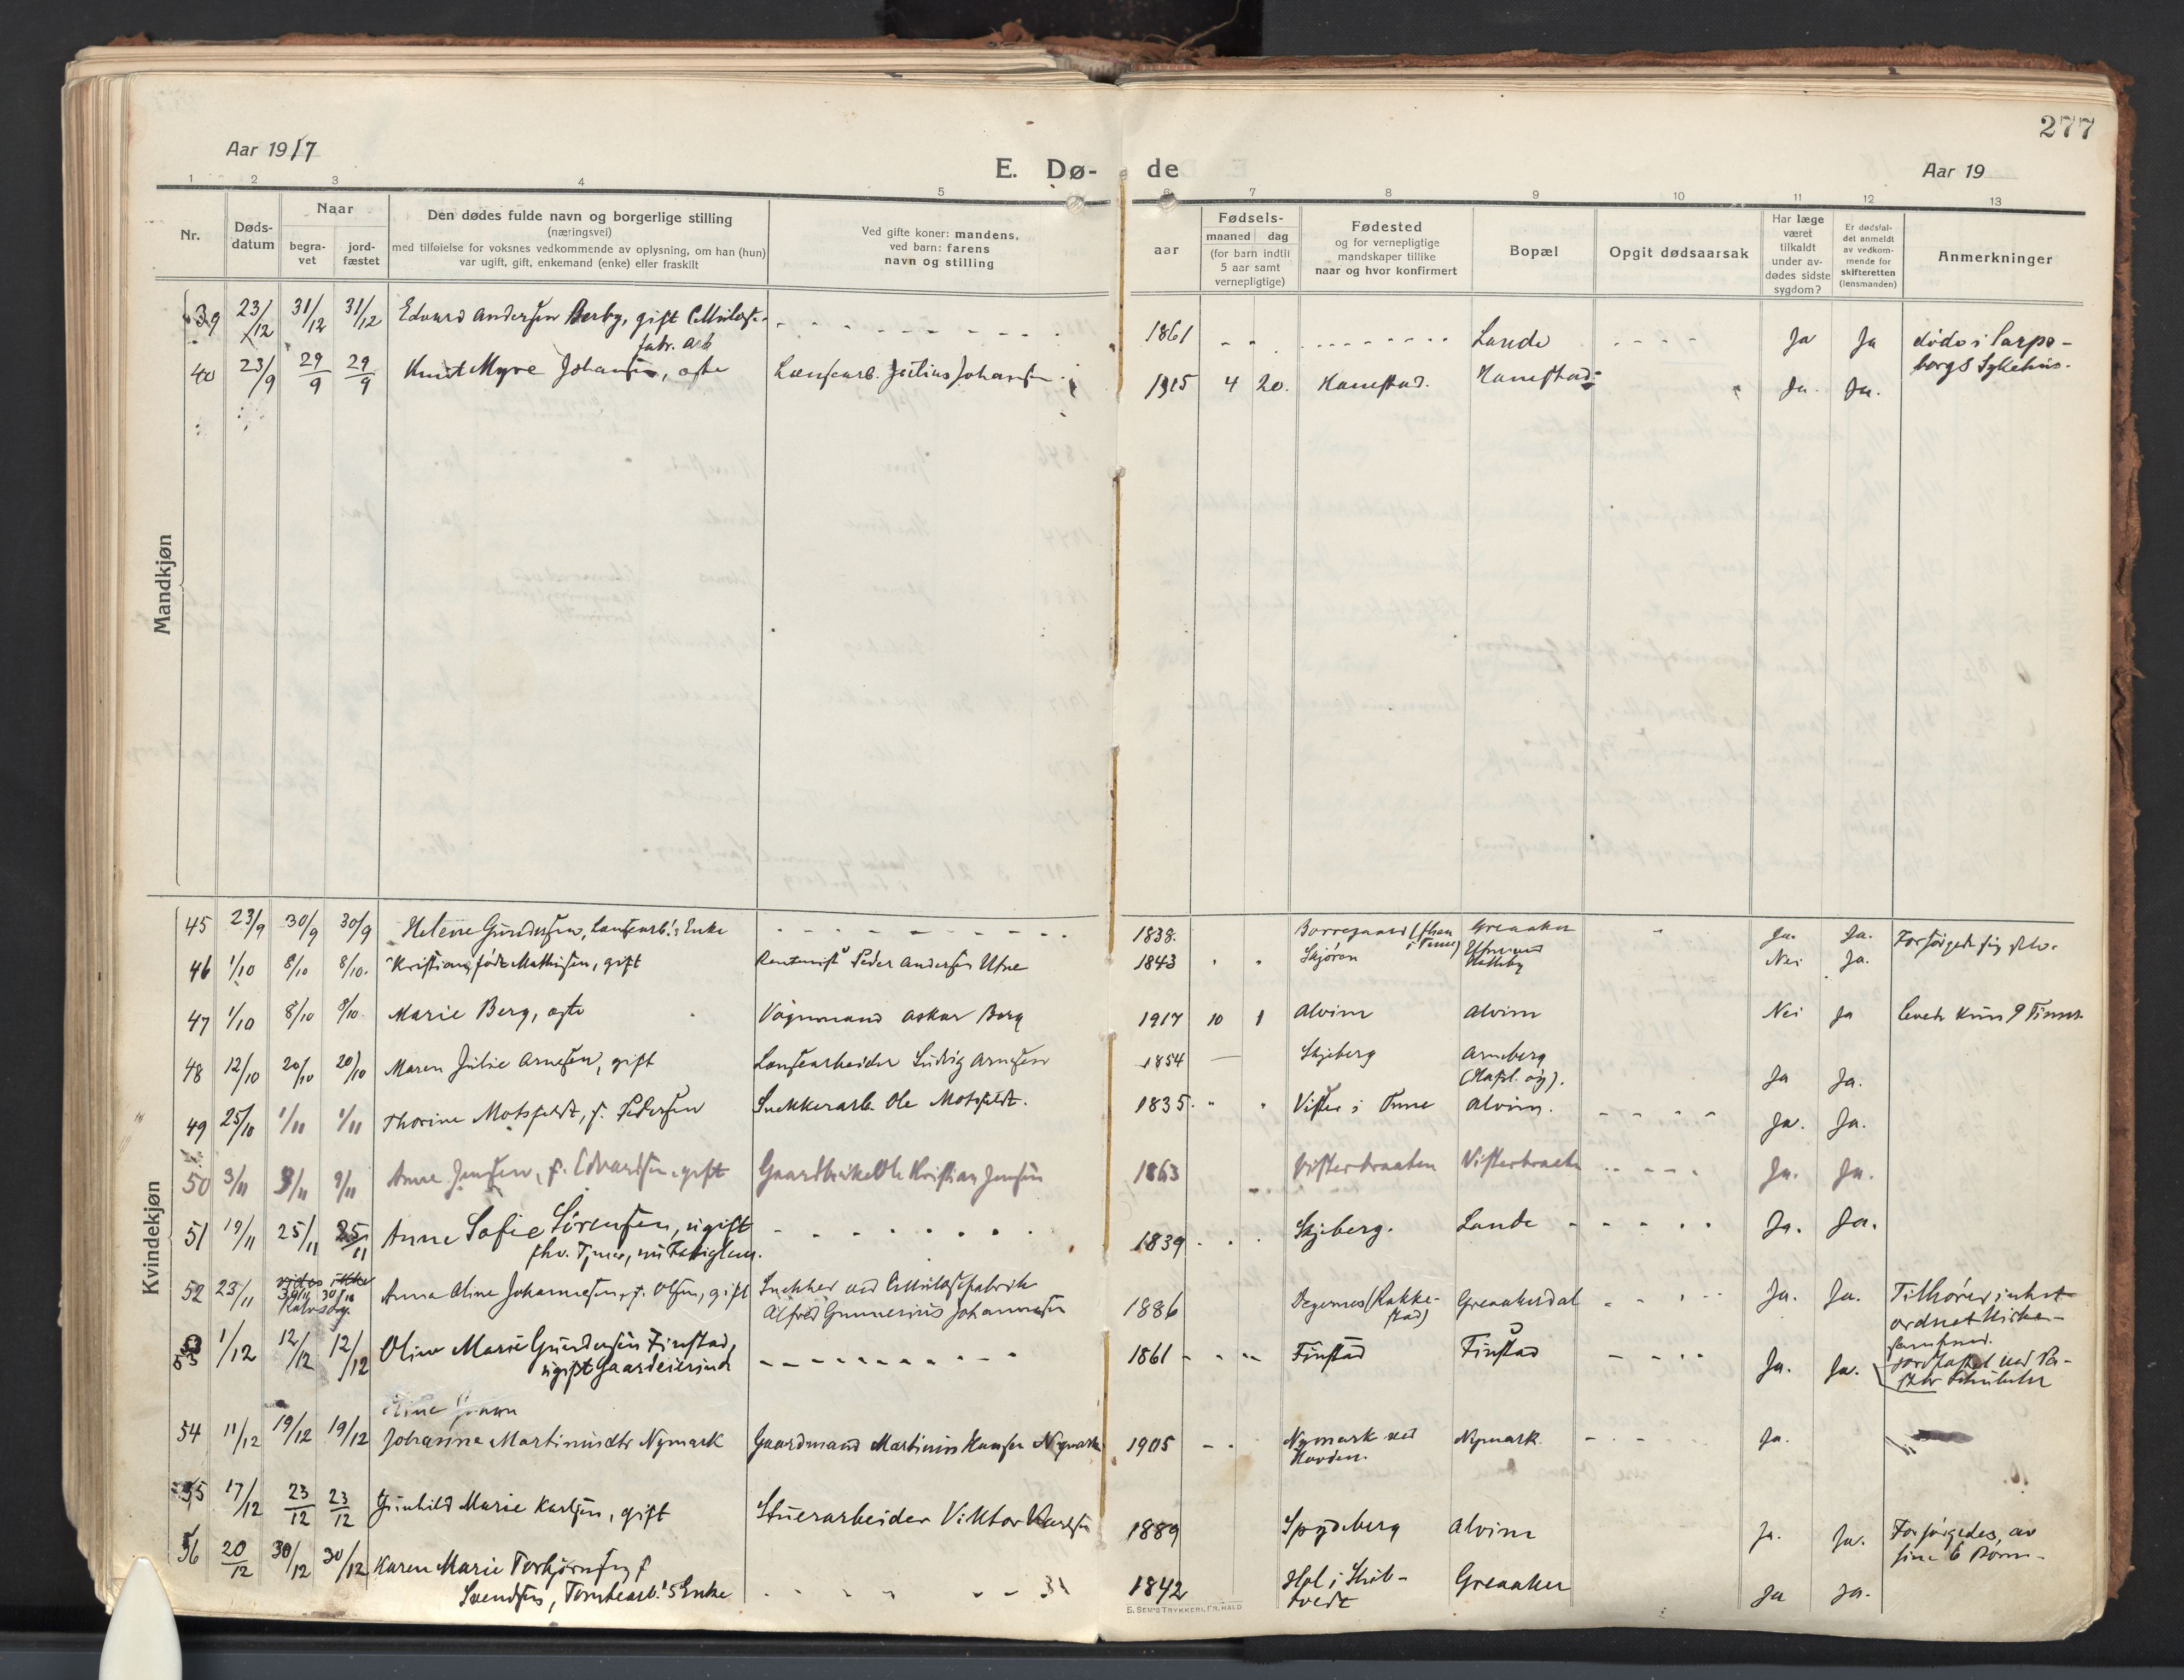 277
Aar 1917
E. Dø- de
Aar 19
1 2 3 4 5 6 7 8 9 10 11 12 13
Nr.
Døds-
datum
Naar
begra-
vet
jord-
fæstet
Den dødes fulde navn og borgerlige stilling
(næringsvei)
med tilføielse for voksnes vedkommende av oplysning, om han (hun)
var ugift, gift, enkemand (enke) eller fraskilt
Ved gifte koner: mandens,
ved barn: farens
navn og stilling
Fødsels-
aar
maaned dag
(for barn indtil
5 aar samt
vernepligtige)
Fødested
og for vernepligtige
mandskaper tillike
naar og hvor konfirmert
Bopæl
Opgit dødsaarsak
Har læge
været
tilkaldt
under av-
dødes sidste
sygdom?
Er dødsfal-
det anmeldt
av vedkom-
mende for
skifteretten
(lensmanden)
Anmerkninger
Mandkjøn
39 23/12 31/12 31/12 Edvard Andersen Berby, gift Cellulose-
fabr. arb
1861 Lande Ja Ja døde i Sarps-
borgs Sykehus.
40 23/9 29/9 29/9 Knut Myre Johansen, ægte Lænsearb. Julius Johansen 1915 4 20. Hanestad. Hanestad Ja. Ja.
Kvindekjøn
45 23/9 30/9 30/9 Helene Gundersen, Lænsearb.'s Enke 1838. Borregaard Greaaker Ja. Ja. Forsørgede sig selv.
46 1/10 8/10 8/10. Kristiane født Mathisen, gift Rentenist Peder Andersen Utne 1843 Skjøren Nei Ja.
47 1/10 8/10 8/10. Marie Berg, ægte Vognmand Oskar Berg 1917 10 1 Alvim Alvim Nei Ja levede kun 9 Timer
48 12/10 20/10 20/10 Maren Julie Arnesen, gift Lænsearbeider Ludvig Arnesen 1854 Skjeberg Arneberg
Ja Ja.
49 25/10 1/11 1/11 Thorine Motsfeldt, f. Pedersen Snekkerarb. Ole Motsfeldt. 1835 Vister i Tune Alvim. Ja. Ja.
50 3/11 9/11 9/11 Anne Jensen, f. Edvardsen, gift Gaardbruker Ole Kristian Jensen 1863 Visterbraaten Visterbraaten Ja. Ja.
51 19/11 25/11 25/11 Anne Sofie Sørensen, ugift
fhv. Tjener, nu Fattiglem. 1839 Skjeberg. Lande Ja. Ja.
52 23/11 30/11 30/11 Anna Oline Johannesen, f. Olsen, gift Snekker ved Cellulosefabrik
Alfred Gunnerius Johannesen 1886 Degernes (Rakke-
stad) Greaakerdal Ja. Ja. Tilhører
ordnet Kirke-
samfund.
53 1/12 12/12 12/12 Oline Marie Gundersen Finstad,
ugift Gaardeierinde 1861 Finstad Finstad Ja. Ja.
54 11/12 19/12 19/12 Johanne Martinusdtr Nymark Gaardmand Martinius Hansen Nymark 1905 Nymark ved
Navdin. Nymark Ja.
55 17/12 23/12 23/12 Gunhild Marie Karlsen, gift Stuerarbeider Viktor Karlsen 1889 Spydeberg Alvim Ja. Ja. Forsørgedes av
sine 6 Børn.
56 20/12 30/12 30/12 Karen Marie Torbjørnsen f.
Svendsen, Tomtearb.'s Enke 1842 Greaaker Ja Ja.
E. SEM'S TRYKKERI, FR.HALD